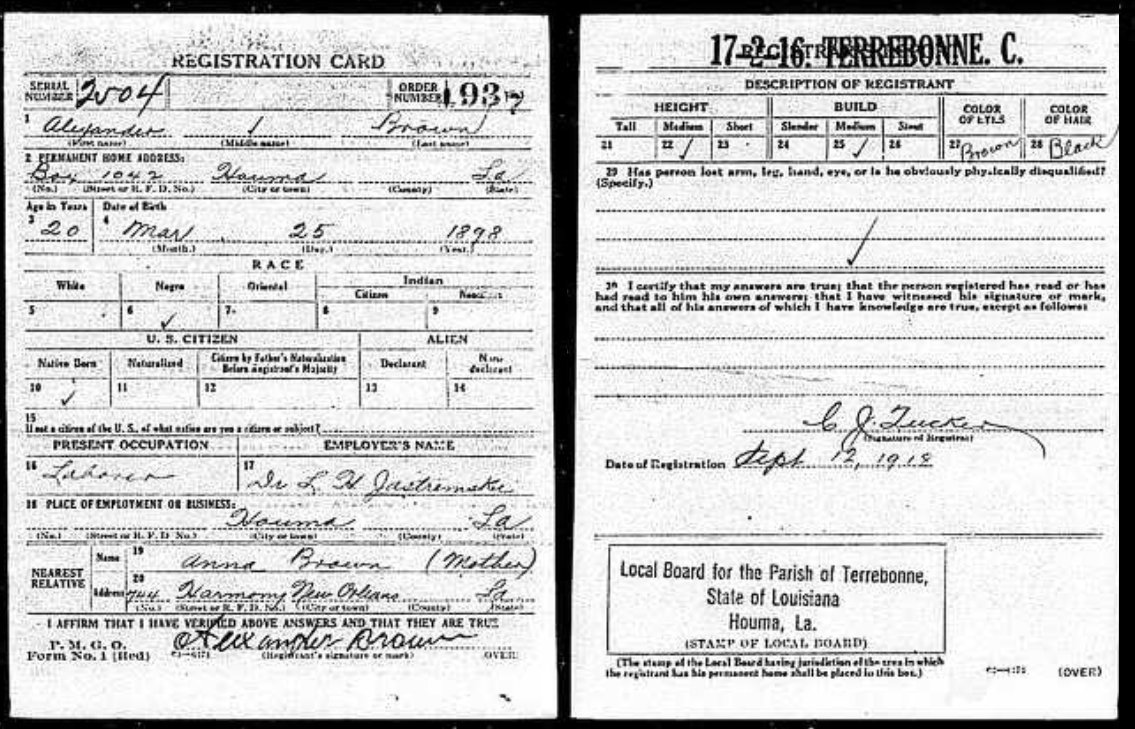 REGISTRATION CARD
SERIAL NUMBER 2504 ORDER NUMBER
1 Alexander / Brown
(First name) (Middle name) (Last name)
2 PERMANENT HOME ADDRESS:
Box 1042 Houma La
(No.) (Street or R. F. D. No.) (City or town) (County) (State)
Age in Years Date of Birth
3 20 4 Mar 25 1898
(Month.) (Day.) (Year.)
RACE
White Negro Oriental Indian
Citizen
5 6 ✓ 7 8 9
U. S. CITIZEN ALIEN
Native Born Naturalized Citizen by Father's Naturalization Before Registrant's Majority Declarant Non-declarant
10 ✓ 11 12 13 14
15
If not a citizen of the U. S., of what nation are you a citizen or subject?
PRESENT OCCUPATION EMPLOYER'S NAME
16 Laborer 17 Dr L H Jastremske
18 PLACE OF EMPLOYMENT OR BUSINESS:
Houma La
(No.) (Street or R. F. D. No.) (City or town) (County) (State)
NEAREST RELATIVE Name 19 Anna Brown (Mother)
Address 20 744 Harmony New Orleans La
(No.) (Street or R. F. D. No.) (City or town) (County) (State)
I AFFIRM THAT I HAVE VERIFIED ABOVE ANSWERS AND THAT THEY ARE TRUE
P. M. G. O.
Form No. 1 (Red) Alexander Brown
(Registrant's signature or mark) (OVER)
17-2-16. TERREBONNE. C.
DESCRIPTION OF REGISTRANT
HEIGHT BUILD COLOR OF EYES COLOR OF HAIR
Tall Medium Short Slender Medium Stout
21 22 ✓ 23 24 25 ✓ 26 27 Brown 28 Black
29 Has person lost arm, leg, hand, eye, or is he obviously physically disqualified?
(Specify.)
✓
30 I certify that my answers are true; that the person registered has read or has
had read to him his own answers; that I have witnessed his signature or mark,
and that all of his answers of which I have knowledge are true, except as follows:
C. J. Tucker
(Signature of Registrar)
Date of Registration Sept 12, 1918
Local Board for the Parish of Terrebonne,
State of Louisiana
Houma, La.
(STAMP OF LOCAL BOARD)
(The stamp of the Local Board having jurisdiction of the area in which
the registrant has his permanent home shall be placed in this box.)
(OVER)